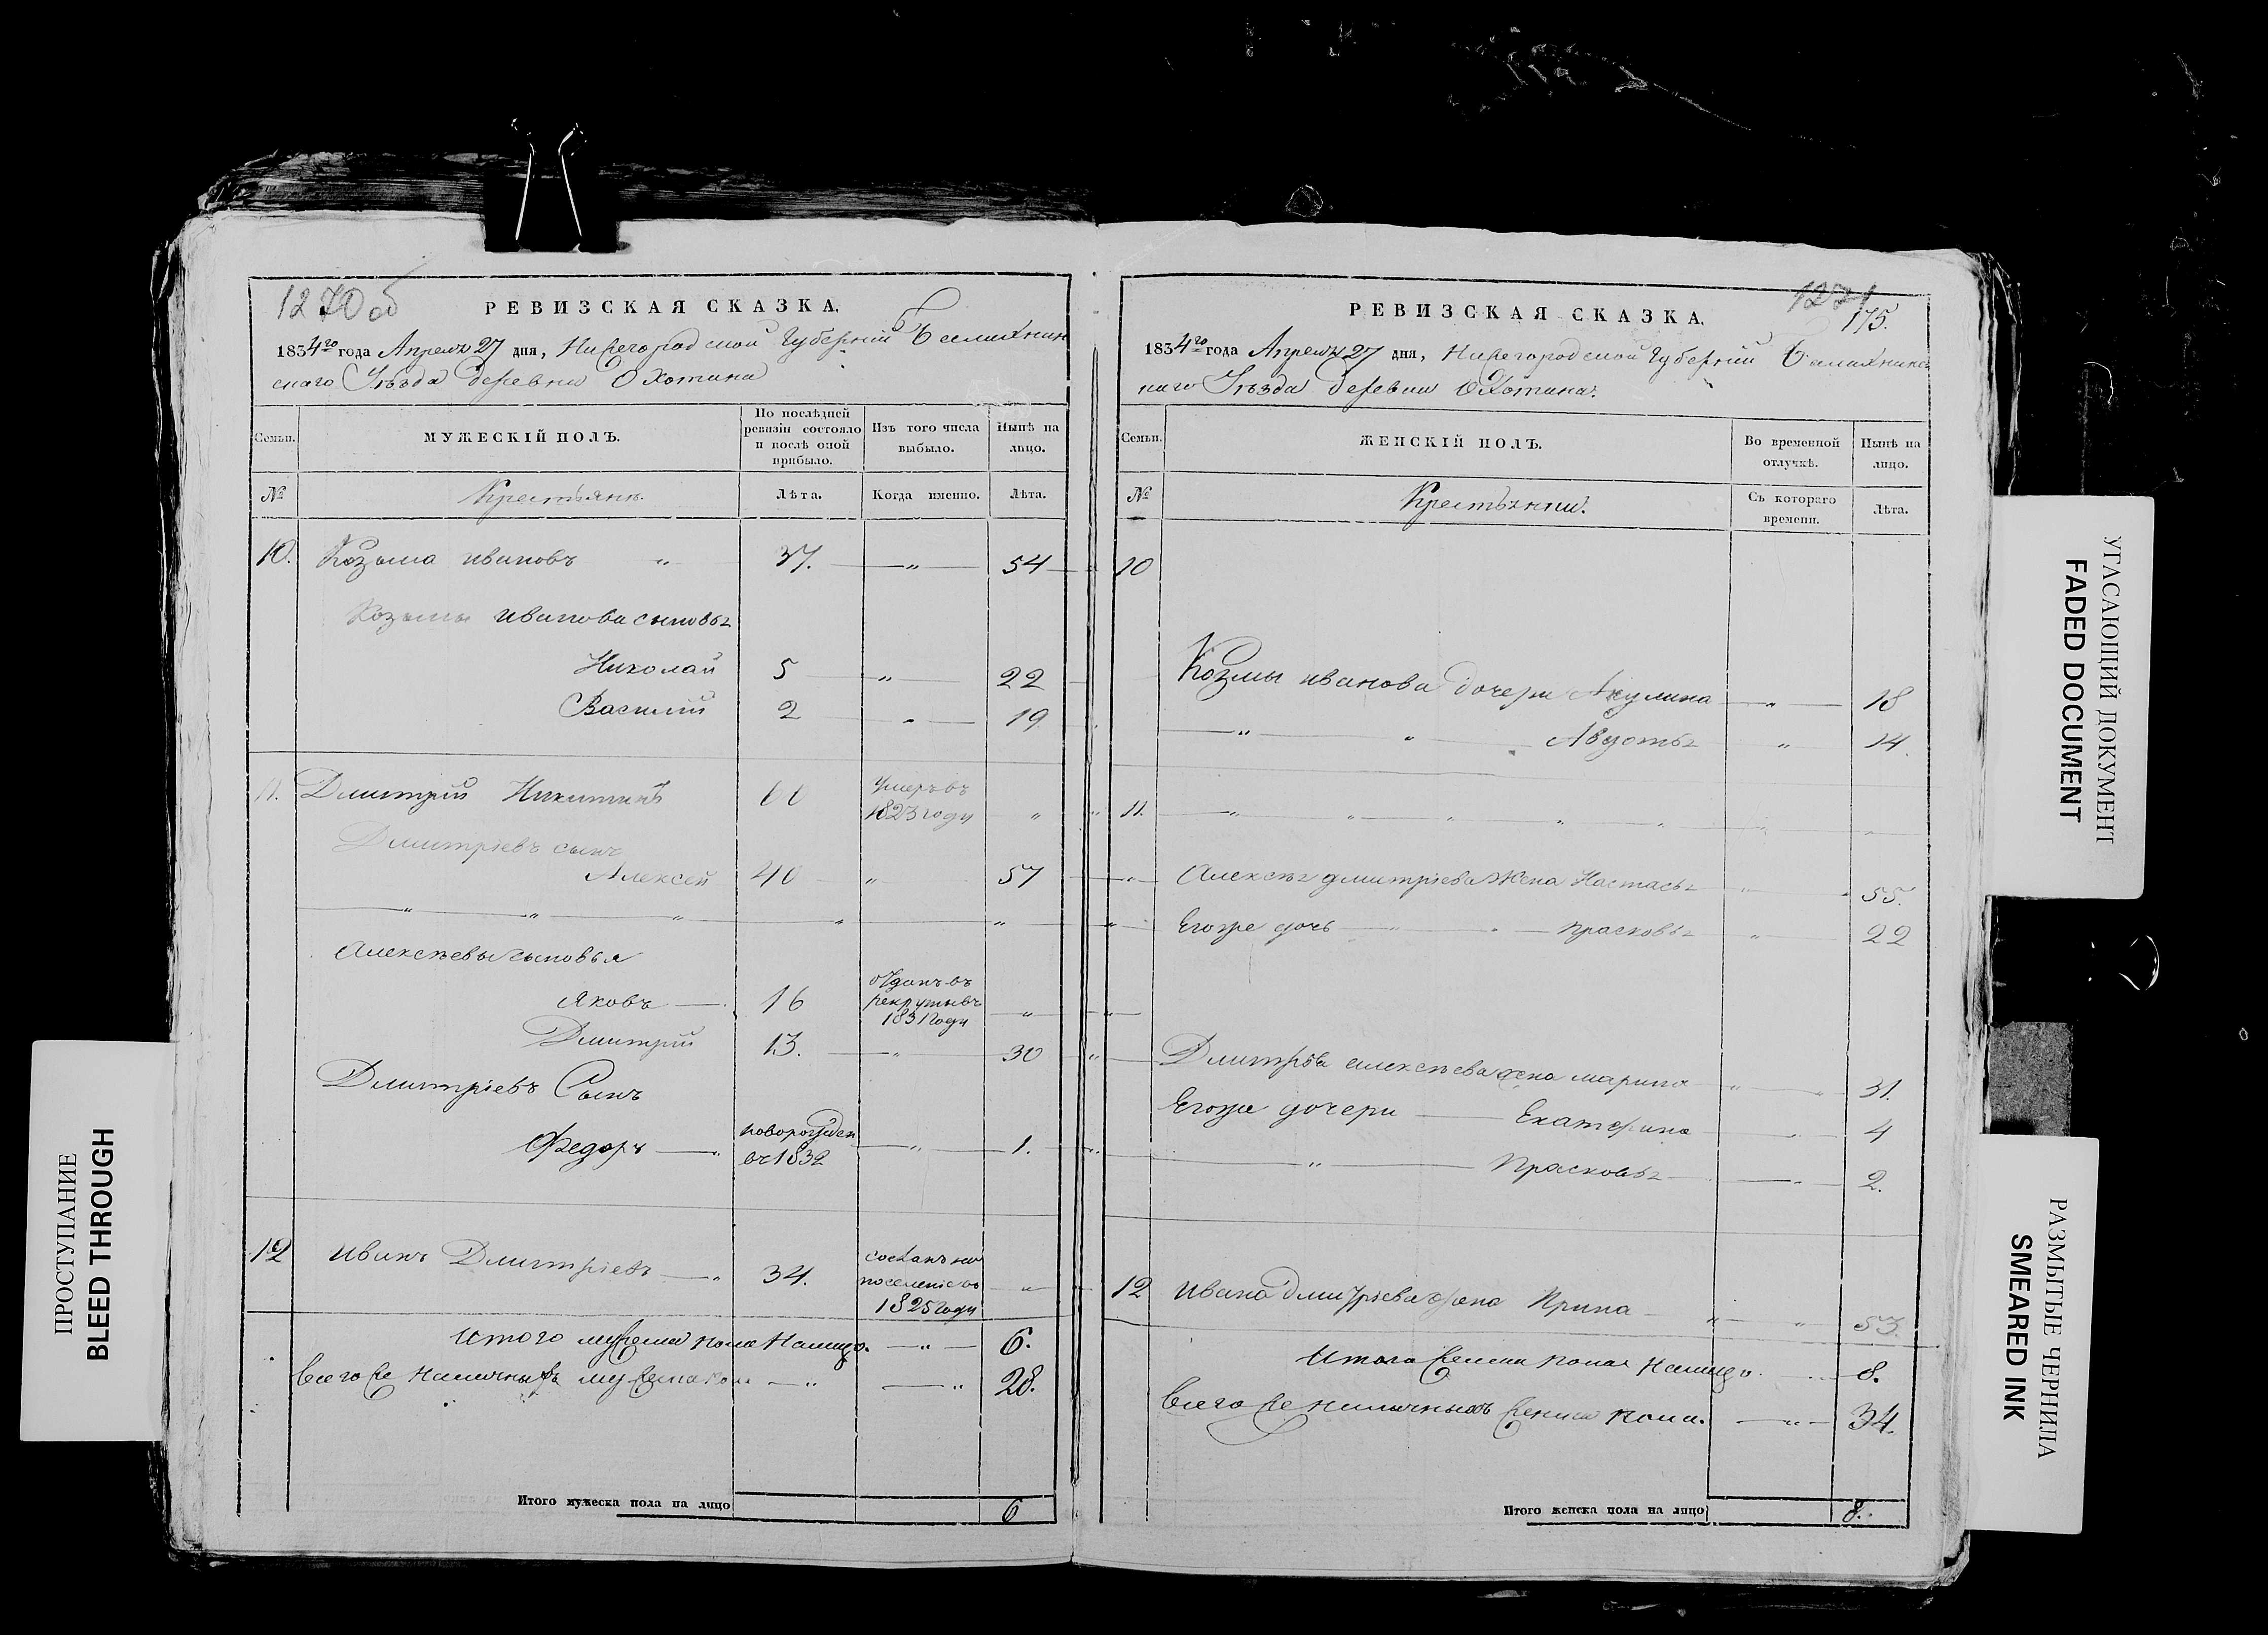 1270 об
РЕВИЗСКАЯ СКАЗКА.
1834го года Апреля 27 дня, Нижегородской Губернии Балахнин
скаго Уѣзда деревни Охотина
Семьи.
МУЖЕСКІЙ ПОЛЪ.
По послѣдней ревизіи состояло и послѣ оной прибыло.
Изъ того числа выбыло.
Нынѣ на лицо.
№
Крестьяне.
Лѣта.
Когда именно.
Лѣта.
10. Козьма Ивановъ " 37. — " — 54
Козьмы Иванова сыновья
Николай 5 " 22
Василий 2 " 19.
11. Дмитрий Никитинъ 66 умеръ въ 1823 году "
Дмитріевъ сынъ
Алексей 40 " 57
" " " " "
Алексѣевы сыновья
Яковъ 16 отданъ въ рекруты въ 1831 году "
Дмитрий 13. " 30
Дмитріевъ Сынъ
Федоръ новорожден въ 1832 " 1.
12 Иванъ Дмитріевъ 34. сосланъ на поселеніе въ 1825 году "
Итого мужеска пола Налицо. — " — 6.
Всего же наличныхъ мужеска пола — " — " 28.
Итого мужеска пола на лицо 6
1271
175.
РЕВИЗСКАЯ СКАЗКА.
1834го года Апреля 27 дня, Нижегородской Губернии Балахнинс
каго Уѣзда деревни Охотина.
Семьи.
ЖЕНСКІЙ ПОЛЪ.
Во временной отлучкѣ.
Нынѣ на лицо.
№
Крестьянки.
Съ котораго времени.
Лѣта.
10
Козмы Иванова дочери Акулина " 18
" " Авдотья " 14.
11. " " " " " " "
Алексѣя Дмитріева Жена Настасья " 55.
Егоже дочь " " Прасковья " 22
Дмитрія алексѣева жена марина " 31.
Егоже дочери — Екатерина " 4
" — Прасковья " 2.
12 Ивана Дмитріева жена Ирина " " 53.
Итого женска пола налицо. 8.
Всего же наличныхъ женска пола. — " — 34.
Итого женска пола на лицо 8.
ПРОСТУПАНИЕ
BLEED THROUGH
УГАСАЮЩИЙ ДОКУМЕНТ
FADED DOCUMENT
РАЗМЫТЫЕ ЧЕРНИЛА
SMEARED INK